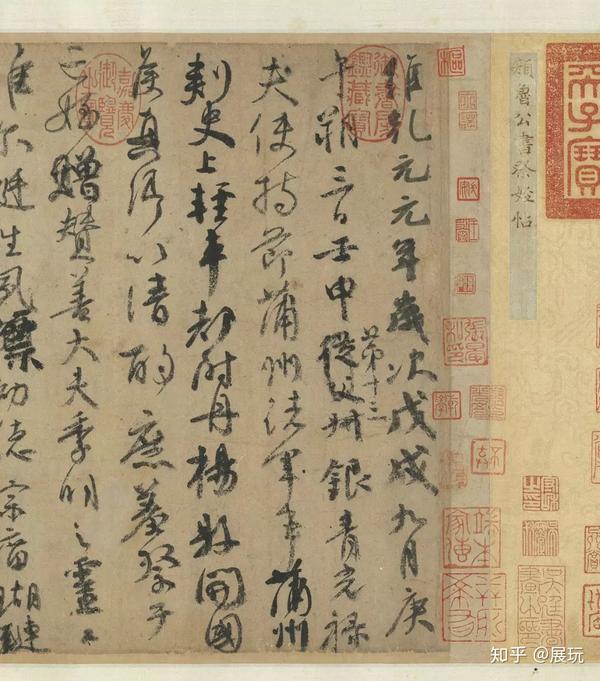 天子寶
顏魯公書祭姪帖
維乾元元年歲次戊戌九月庚
午朔三日壬申從父第十三叔銀青光祿
夫使持節蒲州諸軍事蒲州
刺史上輕車都尉丹楊縣開國
侯真卿以清酌庶羞祭于
亡姪贈贊善大夫季明之靈曰
惟尔挺生夙標幼德宗廟瑚璉
御書房鑑藏寶
嘉慶御覽之寶
知乎 @展玩